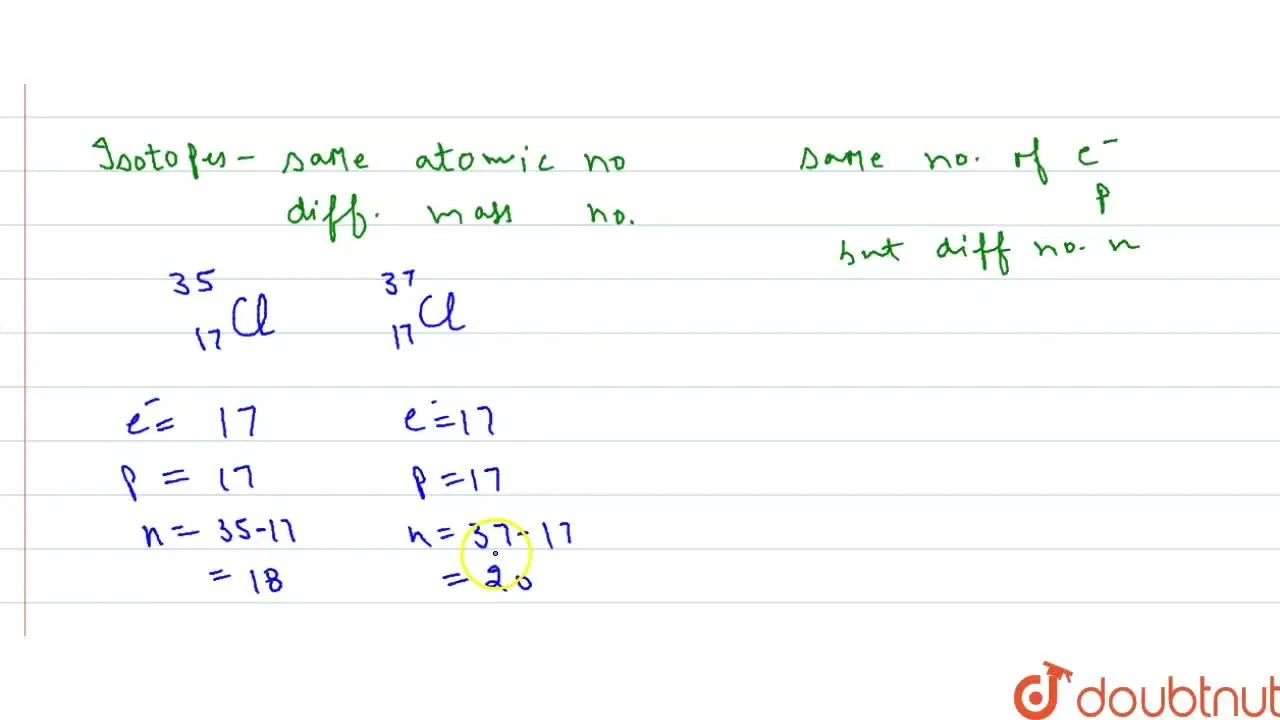 Isotopes - same atomic no
diff. mass no.
same no. of e⁻
p
but diff no. n
³⁵₁₇Cl ³⁷₁₇Cl
e⁻ = 17 e⁻ = 17
p = 17 p = 17
n = 35-17 n = 37-17
= 18 = 20
doubtnut